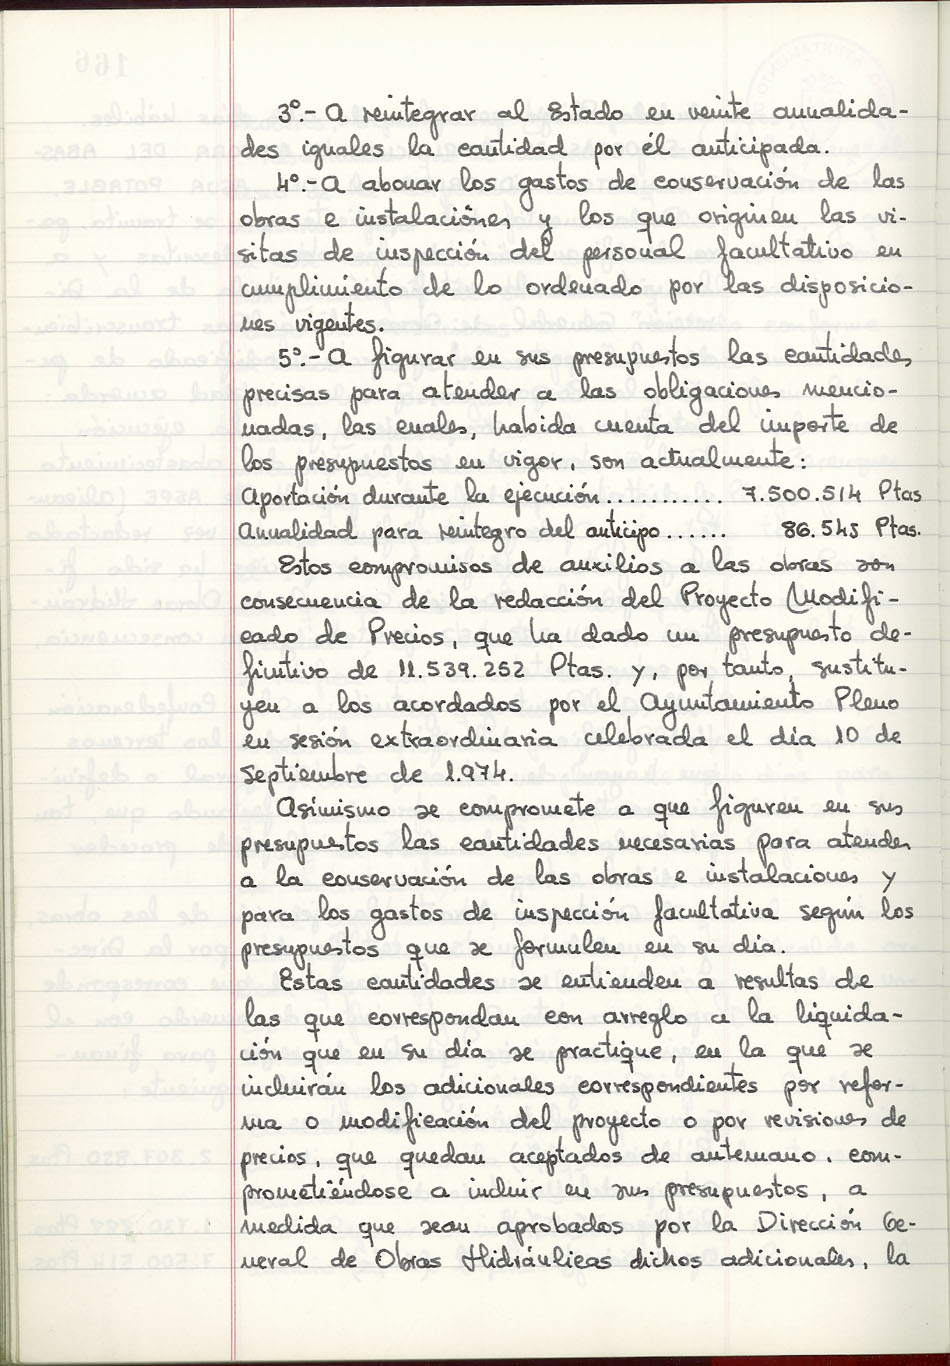 3º.- A reintegrar al Estado en veinte anualida-
des iguales la cantidad por él anticipada.
4º.- A abonar los gastos de conservación de las
obras e instalaciones y los que originen las vi-
sitas de inspección del personal facultativo en
cumplimiento de lo ordenado por las disposicio-
nes vigentes.
5º.- A figurar en sus presupuestos las cantidades
precisas para atender a las obligaciones mencio-
nadas, las cuales, habida cuenta del importe de
los presupuestos en vigor, son actualmente:
Aportación durante la ejecución........... 7.500.514 Ptas
Anualidad para reintegro del anticipo...... 86.545 Ptas.
Estos compromisos de auxilios a las obras son
consecuencia de la redacción del Proyecto Modifi-
cado de Precios, que ha dado un presupuesto de-
finitivo de 11.539.252 Ptas. y, por tanto, sustitu-
yen a los acordados por el Ayuntamiento Pleno
en sesión extraordinaria celebrada el día 10 de
Septiembre de 1.974.
Asimismo se compromete a que figuren en sus
presupuestos las cantidades necesarias para atender
a la conservación de las obras e instalaciones y
para los gastos de inspección facultativa según los
presupuestos que se formulen en su día.
Estas cantidades se entienden a resultas de
las que correspondan con arreglo a la liquida-
ción que en su día se practique, en la que se
incluirán los adicionales correspondientes por refor-
ma o modificación del proyecto o por revisiones de
precios, que quedan aceptados de antemano, com-
prometiéndose a incluir en sus presupuestos, a
medida que sean aprobados por la Dirección Ge-
neral de Obras Hidráulicas dichos adicionales, la